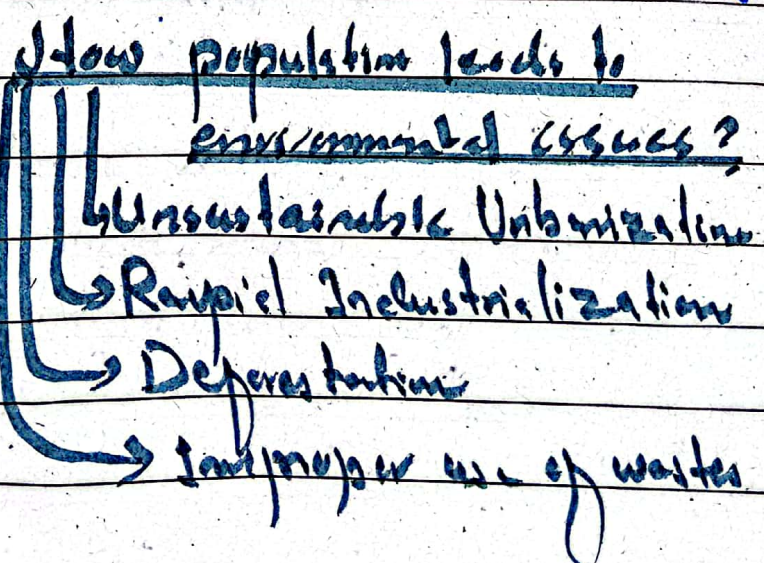 How population leads to
environmental issues?
Unsustainable Urbanization
Rapid Industrialization
Deforestation
Improper use of wastes